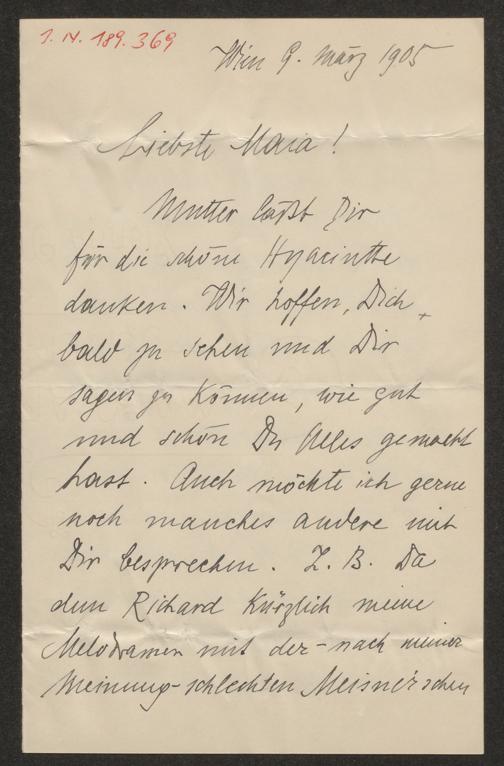 I.N. 189.369
Wien 9. März 1905
Liebste Maia!
Mutter läßt Dir
für die schöne Hyacinthe
danken. Wir hoffen, Dich
bald zu sehen und Dir
sagen zu können, wie gut
und schön Du Alles gemacht
hast. Auch möchte ich gerne
noch manches andere mit
Dir besprechen. Z. B. Da
denn Richard kürzlich meine
Melodramen mit der - nach meiner
Meinung - schlechten Meisner'schen